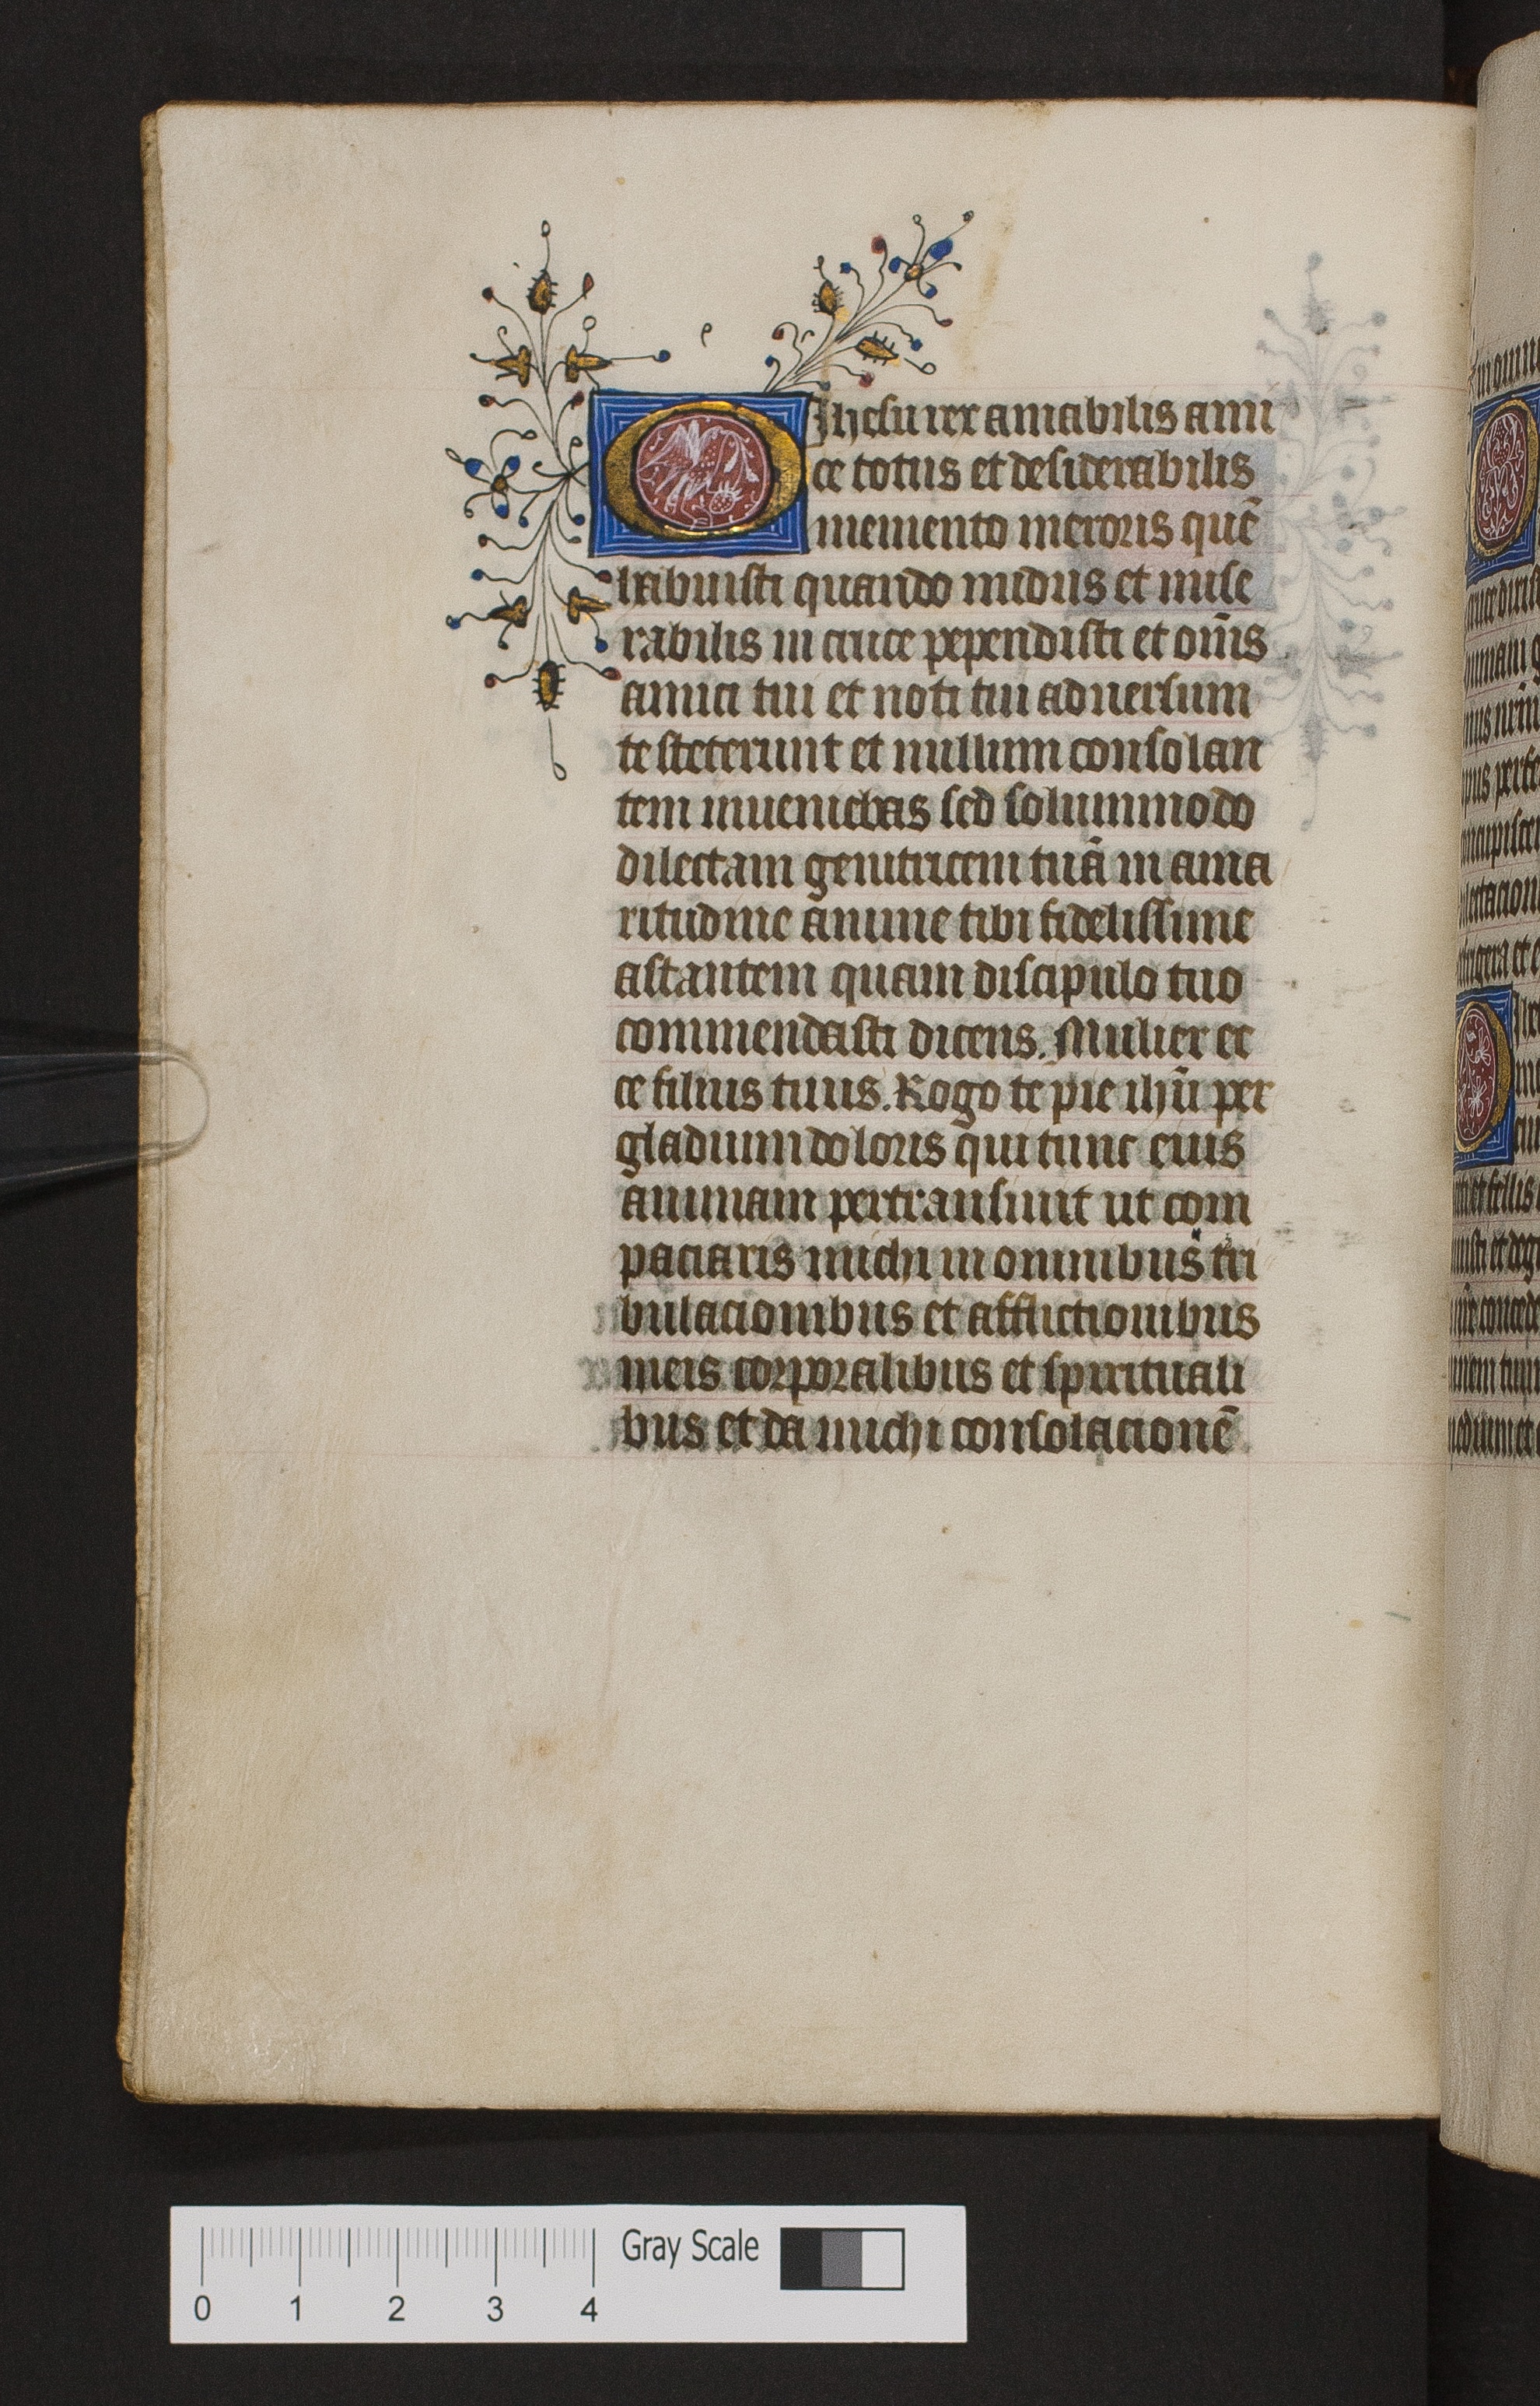 O Jhesu rex amabilis ami
ce totus et desiderabilis
memento meroris quē
habuisti quando nudus et mise
rabilis in cruce pependisti et om̄s
amici tui et noti tui aduersum
te steterunt et nullum consolan
tem inueniebas sed solummodo
dilectam genitricem tuā in ama
ritudine anime tibi fidelissime
astantem quam discipulo tuo
commendasti dicens. Mulier ec
ce filius tuus. Rogo te pie ihū per
gladium doloris qui tunc eius
animam pertransiuit ut com
paciaris michi in omnibus tri
bulacionibus et afflictionibus
meis corporalibus et spirituali
bus et da michi consolacionē
Gray Scale
0 1 2 3 4